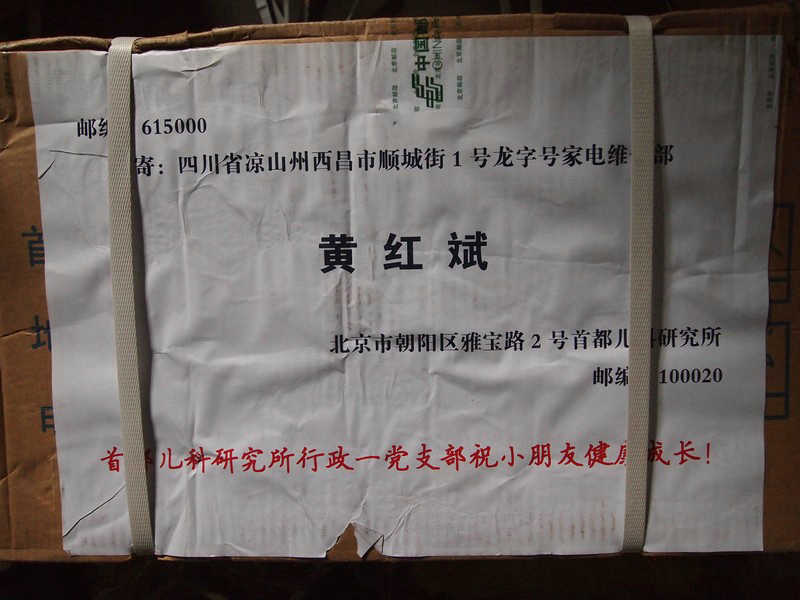 中国邮
邮编 615000
寄：四川省凉山州西昌市顺城街1号龙字号家电维 部
黄红斌
北京市朝阳区雅宝路2号首都儿科研究所
邮编 100020
首都儿科研究所行政一党支部祝小朋友健康成长！
首
地